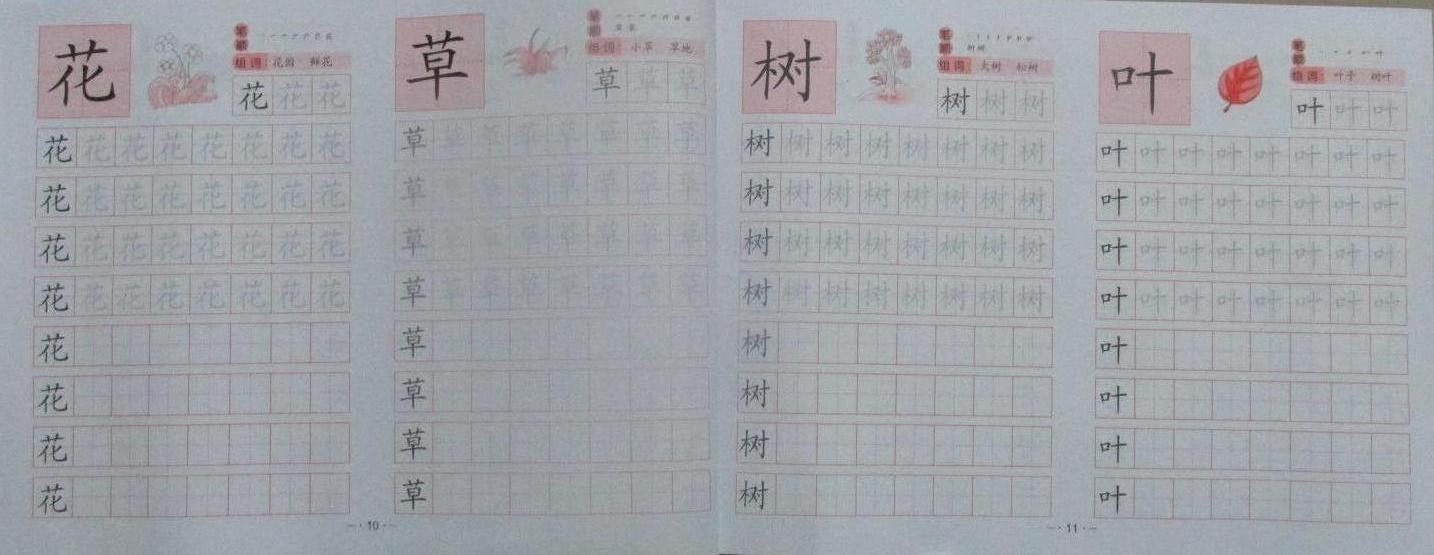 花
笔顺
组词 花园 鲜花
花 花 花
花 花 花 花 花 花 花 花
花 花 花 花 花 花 花 花
花 花 花 花 花 花 花 花
花 花 花 花 花 花 花 花
花
花
花
花
草
笔顺
组词 小草 草地
草 草 草
草 草 草 草 草 草 草 草
草 草 草 草 草 草 草 草
草 草 草 草 草 草 草 草
草 草 草 草 草 草 草 草
草
草
草
草
10
树
笔顺
组词 大树 松树
树 树 树
树 树 树 树 树 树 树 树
树 树 树 树 树 树 树 树
树 树 树 树 树 树 树 树
树 树 树 树 树 树 树 树
树
树
树
树
叶
笔顺
组词 叶子 树叶
叶 叶 叶
叶 叶 叶 叶 叶 叶 叶 叶
叶 叶 叶 叶 叶 叶 叶 叶
叶 叶 叶 叶 叶 叶 叶 叶
叶 叶 叶 叶 叶 叶 叶 叶
叶
叶
叶
叶
11